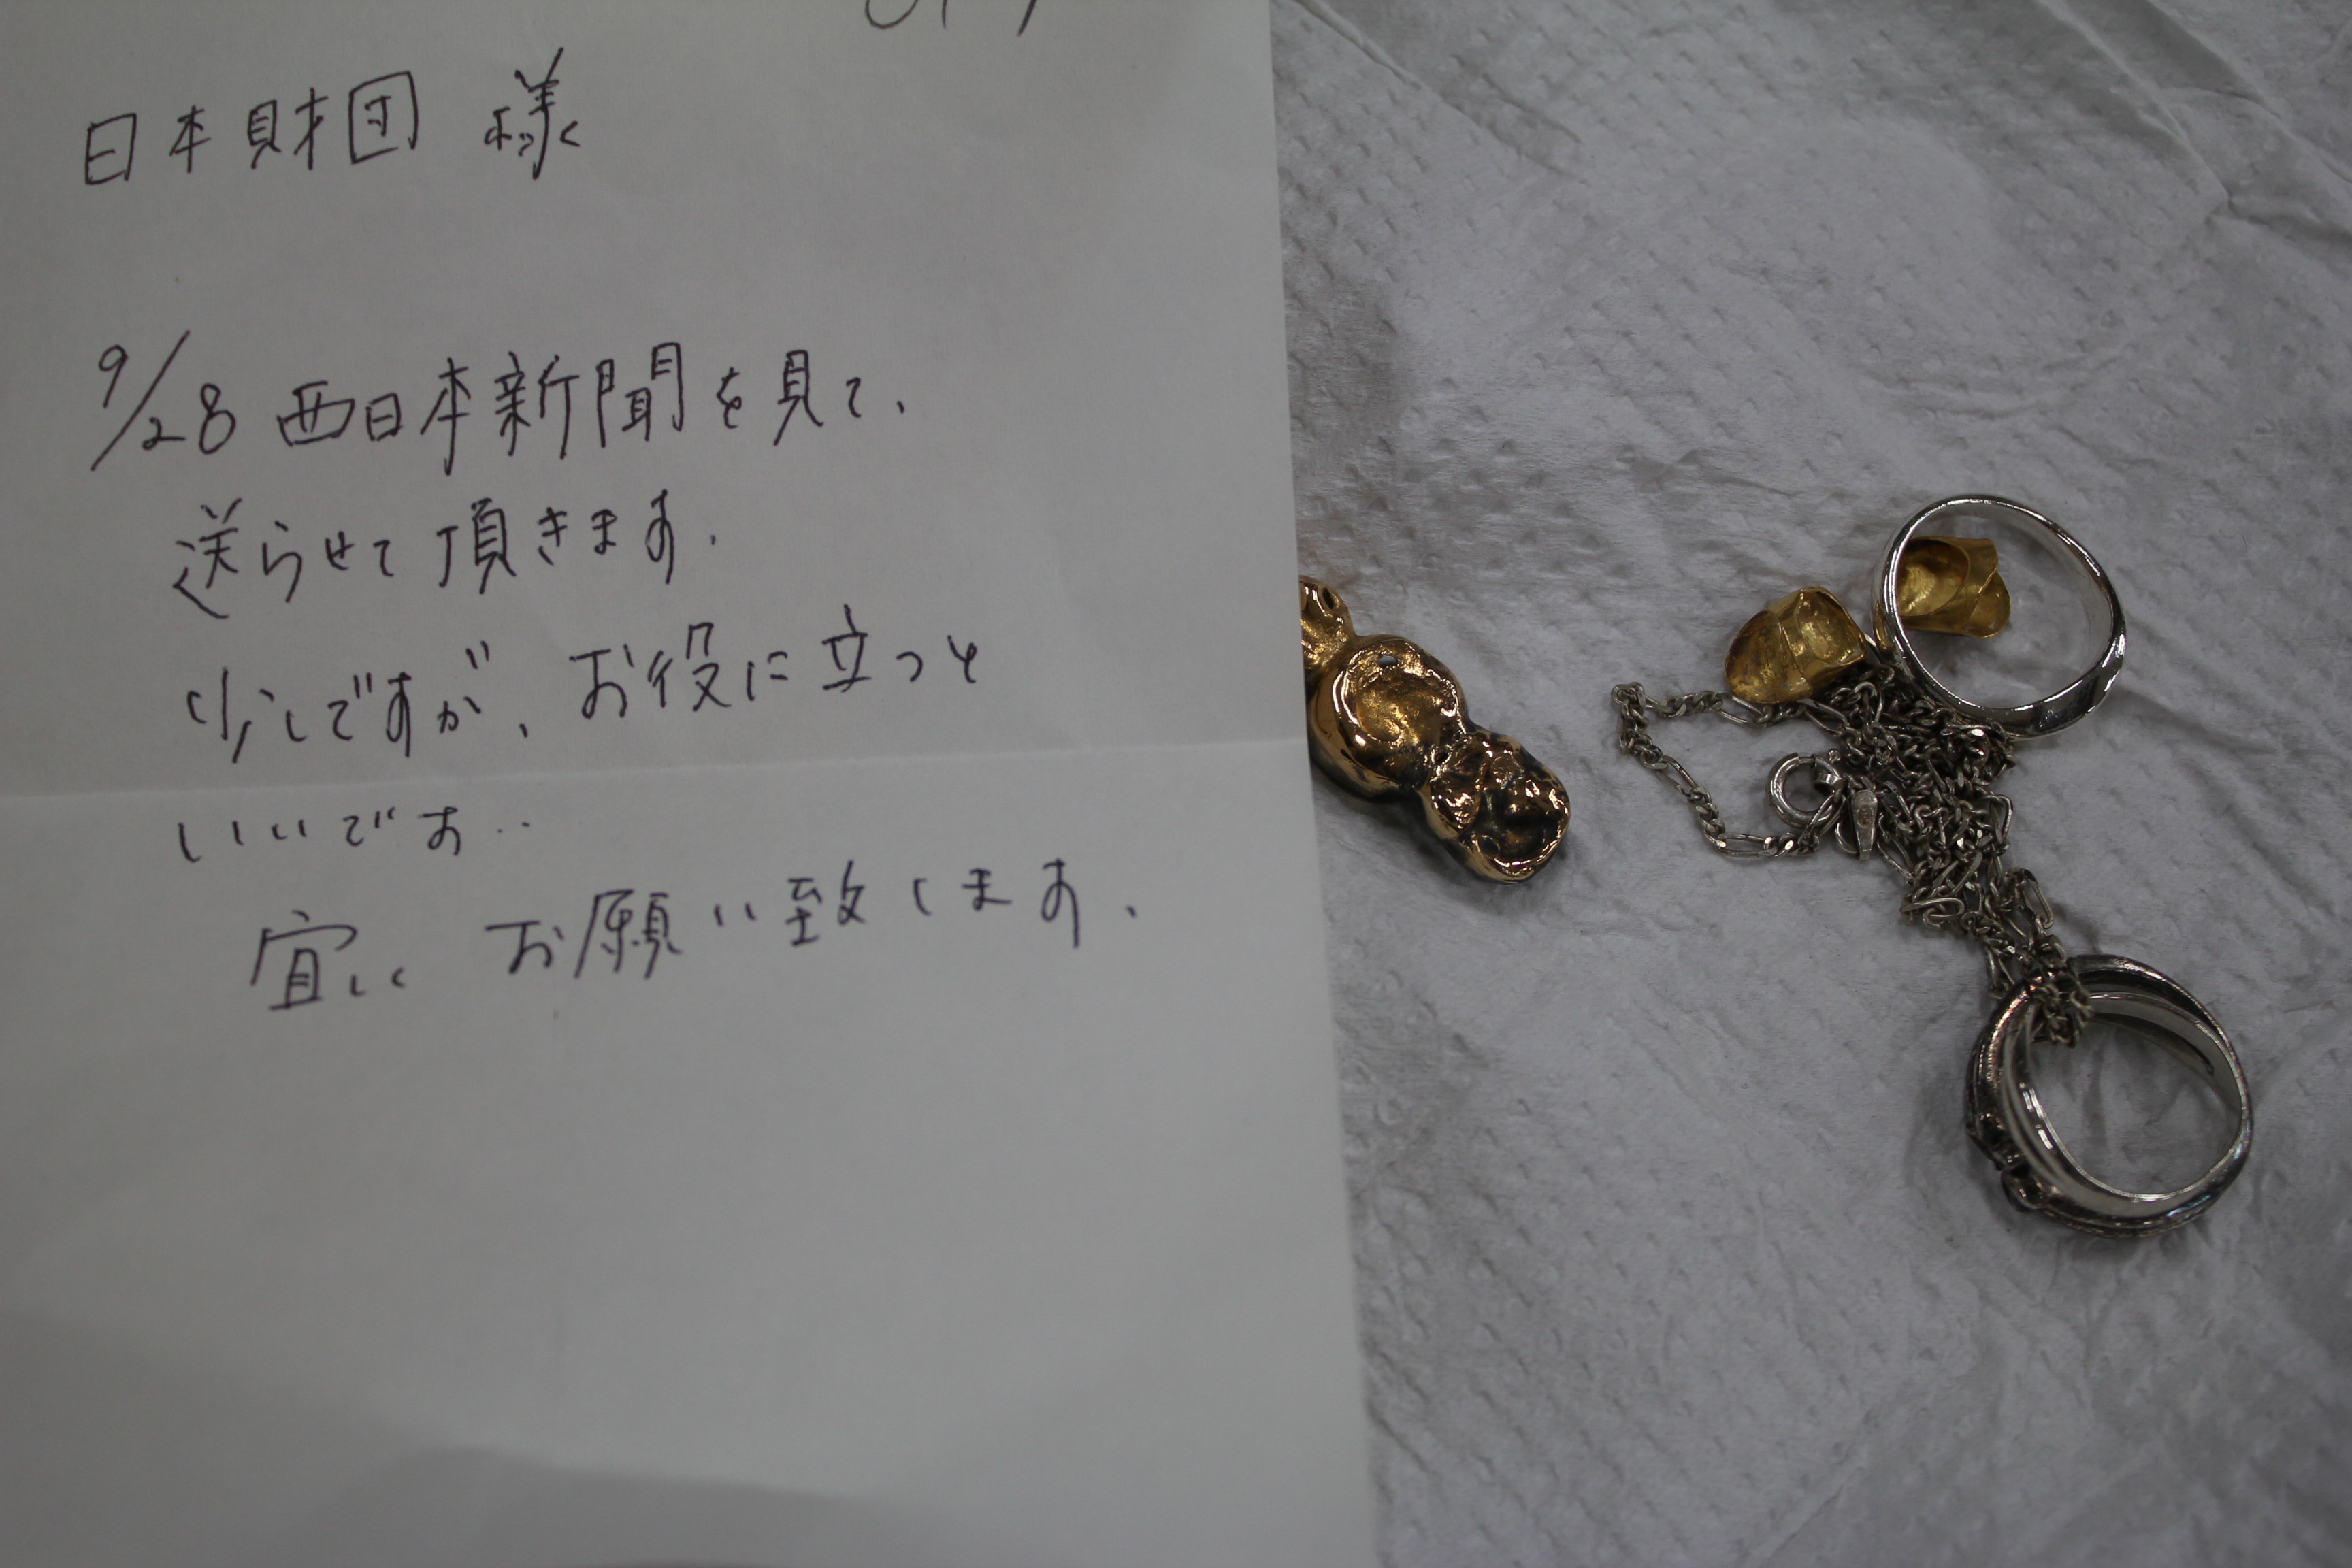 日本財団 様
9/28 西日本新聞を見て、
送らせて頂きます.
少しですが、お役に立つと
いいです..
宜しく お願い致します、